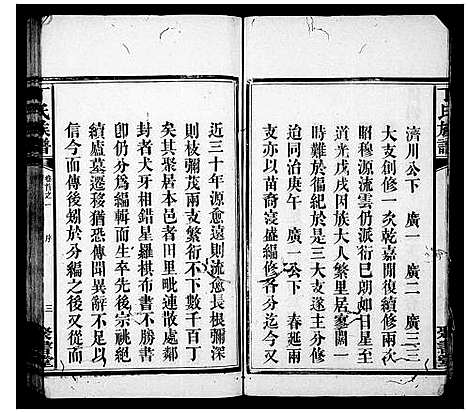 丁氏族譜
濟川公下 廣一 廣二 廣三三
大支創修一次乾嘉間復續修兩次
昭穆源流雲仍派衍巳朗如日月
道光戊戌因族大人繁里居寥闊一
時難於徧紀於是三大支遂分三修
迨同治庚午 廣一公下 春延兩
公亦以苗裔寖盛編修各分迄今又
近三十年源愈遠則流愈長根彌深
則枝彌茂兩支繁衍不下數千百丁
矣其聚居本邑者田里毗連散處鄰
封者犬牙相錯星羅棋布書不勝書
卽仍分爲編輯而生卒先後宗祧絕
續廬墓遷移猶恐傳聞異辭不足以
信今而傳後矧於分編之後又從而
氏族譜
卷首之一 序
三
聚書堂